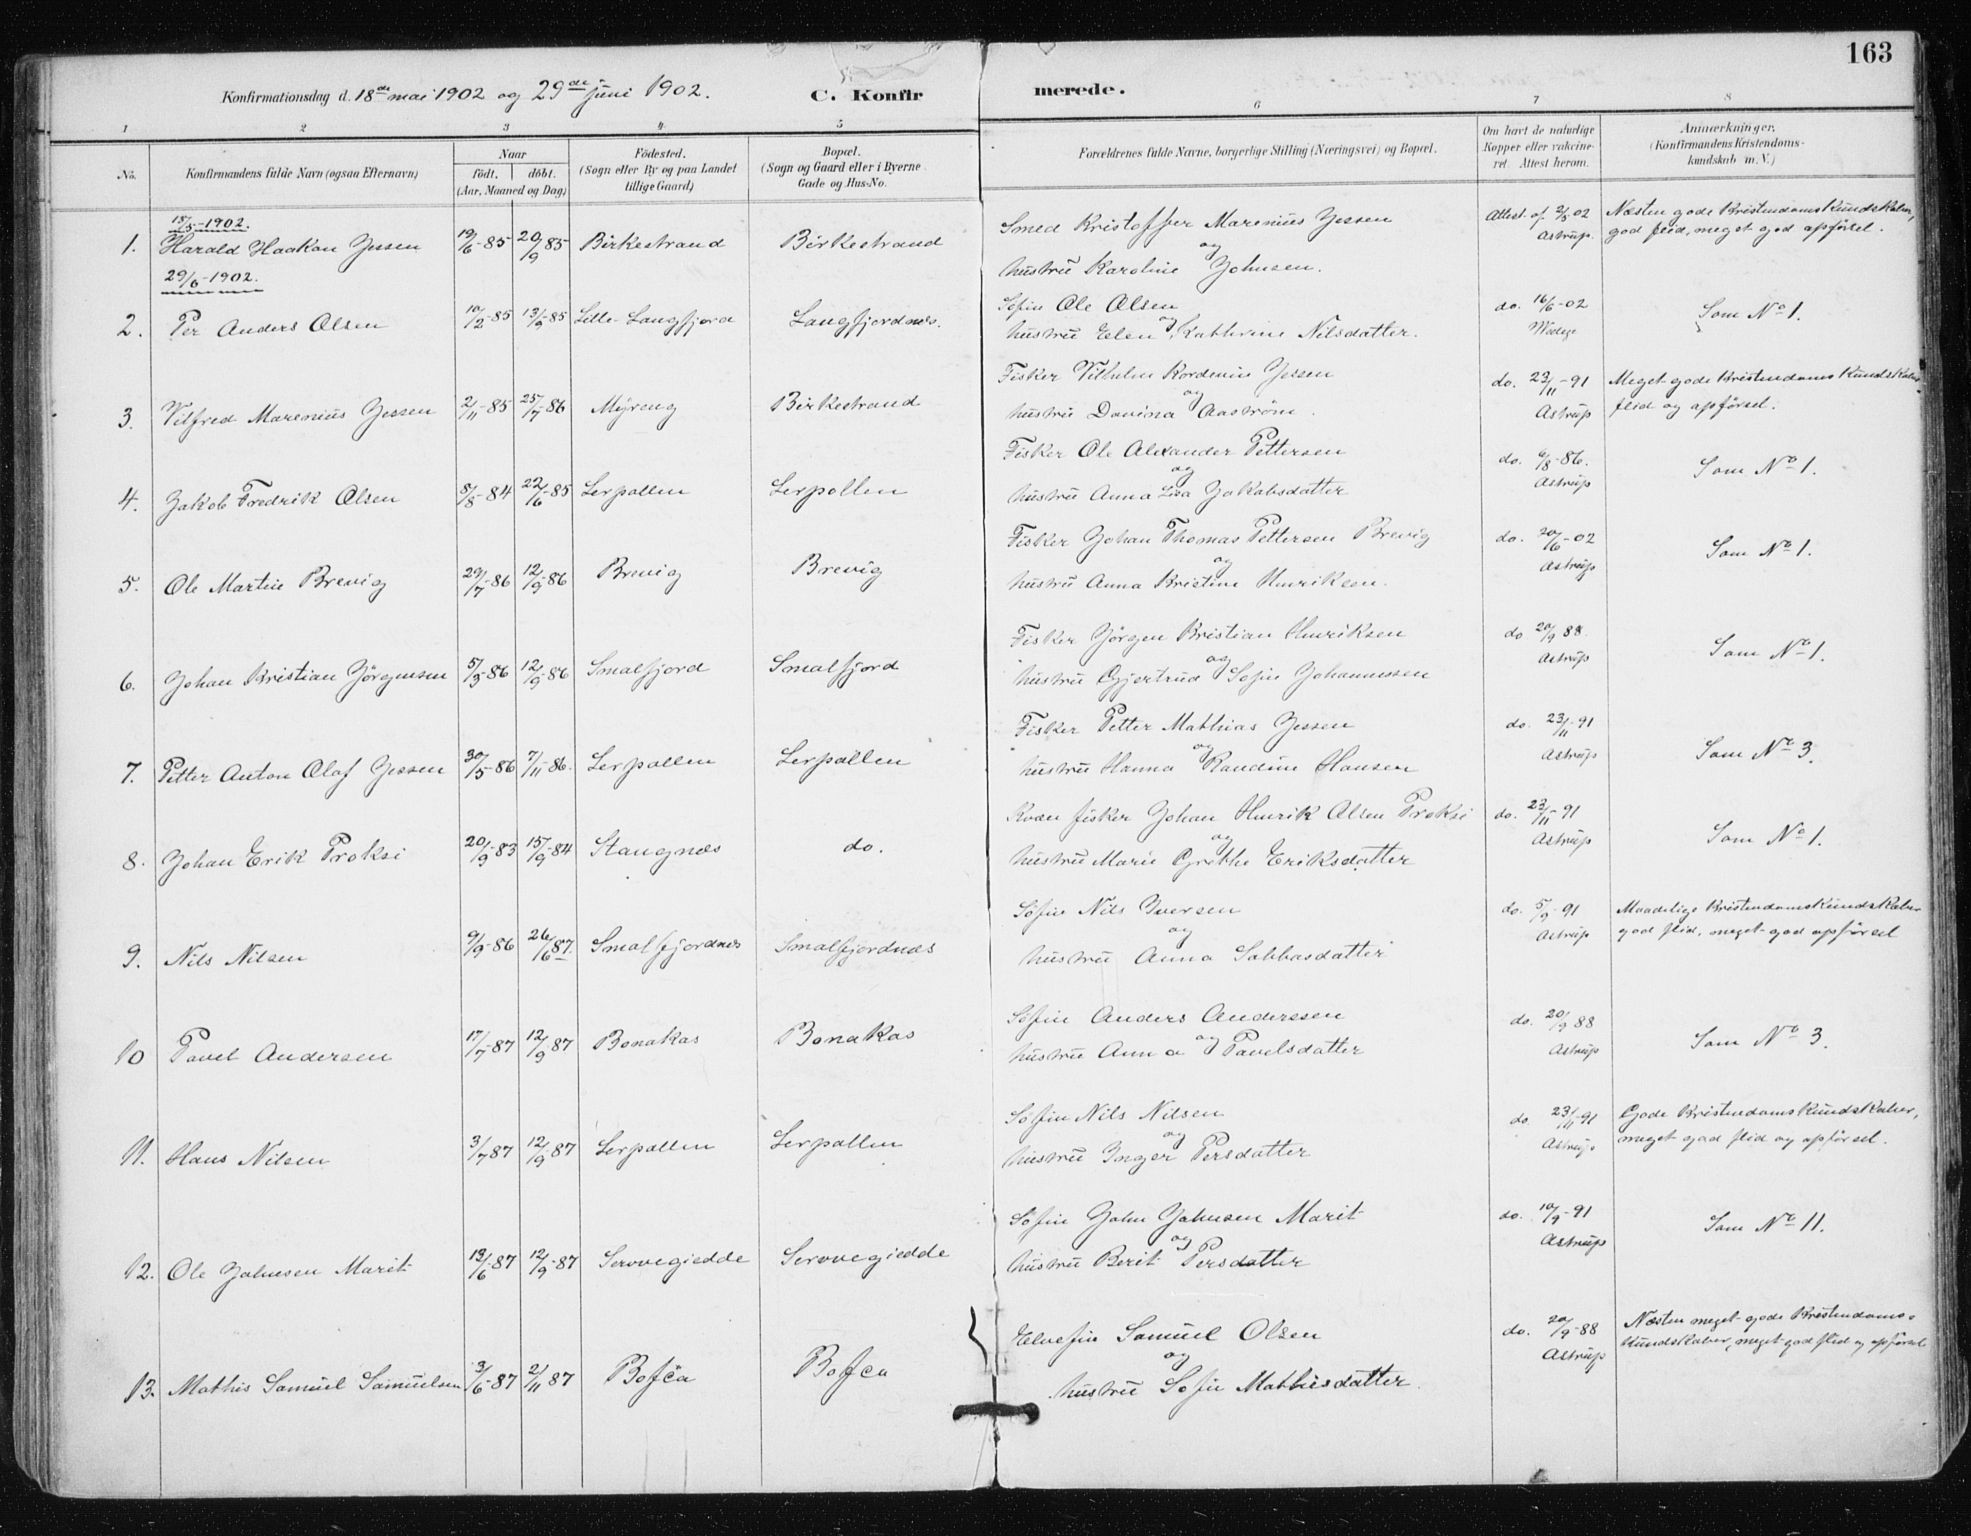 163
Konfirmationsdag d. 18de mai 1902 og 29de juni 1902. C. Konfirmerede.
1 2 3 4 5 6 7 8
No. Konfirmandens fulde Navn (ogsaa Efternavn) Naar födt. döbt. (Aar, Maaned og Dag) Födested. (Sogn eller By og paa Landet tillige Gaard) Bopæl. (Sogn og Gaard eller i Byerne Gade og Hus-No. Forældrenes fulde Navne, borgerlige Stilling (Næringsvei) og Bopæl. Om havt de naturlige Kopper eller vakcineret. Attest herom. Anmærkninger. (Konfirmandens Kristendomskundskab m. V.)
18/5-1902.
1. Harald Haakon Jessen 19/6-85 20/9 85 Birkestrand Birkestrand Smed Kristoffer Marenius Jessen og hustru Karoline Johnsen. Attest af 2/5 02 Astrup. Næsten gode Kristendomskundskaber, god flid, meget god opførsel.
29/6-1902.
2. Per Anders Olsen 10/2-85 13/9-85 Lille-Langfjord Langfjordnes. Søfin Ole Olsen og hustru Elen Kathrine Nilsdatter. do. 16/6-02 Som No 1.
3. Vilfred Marenius Jessen 2/11-85 25/7 86 Myreng Birkestrand Fisker Vilhelm Kordenius Jessen og hustru Davina Aastrøm. do. 23/11-91 Astrup Meget gode Kristendomskundskaber, flid og opførsel.
4. Jakob Fredrik Olsen 5/8-84 22/6-85 Lerpollen Lerpollen Fisker Ole Alexander Pettersen og hustru Anna Lisa Jakobsdatter do. 9/8-86. Astrup Som No 1.
5. Ole Martin Brevig 29/7-86 12/9 86 Brevig Brevig Fisker Johan Thomas Pettersen Brevig og hustru Anna Kristine Henriksen. do. 20/6-02 Astrup Som No 1.
6. Johan Kristian Jörgensen 5/3-86 12/9 86 Smalfjord Smalfjord Fisker Jörgen Kristian Henriksen og hustru Gjertrud Sofie Johannessen do 20/9 88. Astrup Som No 1.
7. Petter Anton Olaf Jessen 30/5-86 7/11-86. Lerpollen Lerpollen Fisker Petter Mathias Jessen og hustru Hanna Randine Hansen do. 23/11-91 Astrup Som No 3.
8. Johan Erik Proksi 20/9-83 15/9-84 Stangnæs do. Kvæn fisker Johan Henrik Olsen Proksi og hustru Marie Grethe Eriksdatter do. 23/11-91 Astrup Som No 1.
9. Nils Nilsen 9/9-86 26/6 87. Smalfjordnes Smalfjordnæs Søfin Nils Iversen og hustru Anna Sabbasdatter do. 5/9-91 Astrup Maadelige Kristendomskundskaber, god flid, meget god opførsel
10 Pavel Andersen 17/7-87 12/9 87 Bonakas Bonakas Søfin Anders Anderssen og hustru Anna Pavelsdatter do. 20/9 88 Astrup Som No 3.
11. Hans Nilsen 3/7 87 12/9 87 Lerpollen Lerpollen Søfin Nils Nilsen og hustru Inger Persdatter do. 23/11-91 Astrup Gode Kristendomskundskaber, meget god flid og opførsel.
12. Ole Johnsen Marit 19/6-87 12/9-87 Serovegiedde Serovegiedde Søfin John Johnsen Marit og hustru Berit Persdatter do. 10/9-91 Astrup Som No 11.
13. Mathis Samuel Samuelsen 3/6-87 2/11 87 Bofča Bofca Elvefin Samuel Olsen og hustru Sofie Mathisdatter. do. 20/9-88 Astrup Næsten meget gode Kristendomskundskaber, meget god flid og opførsel